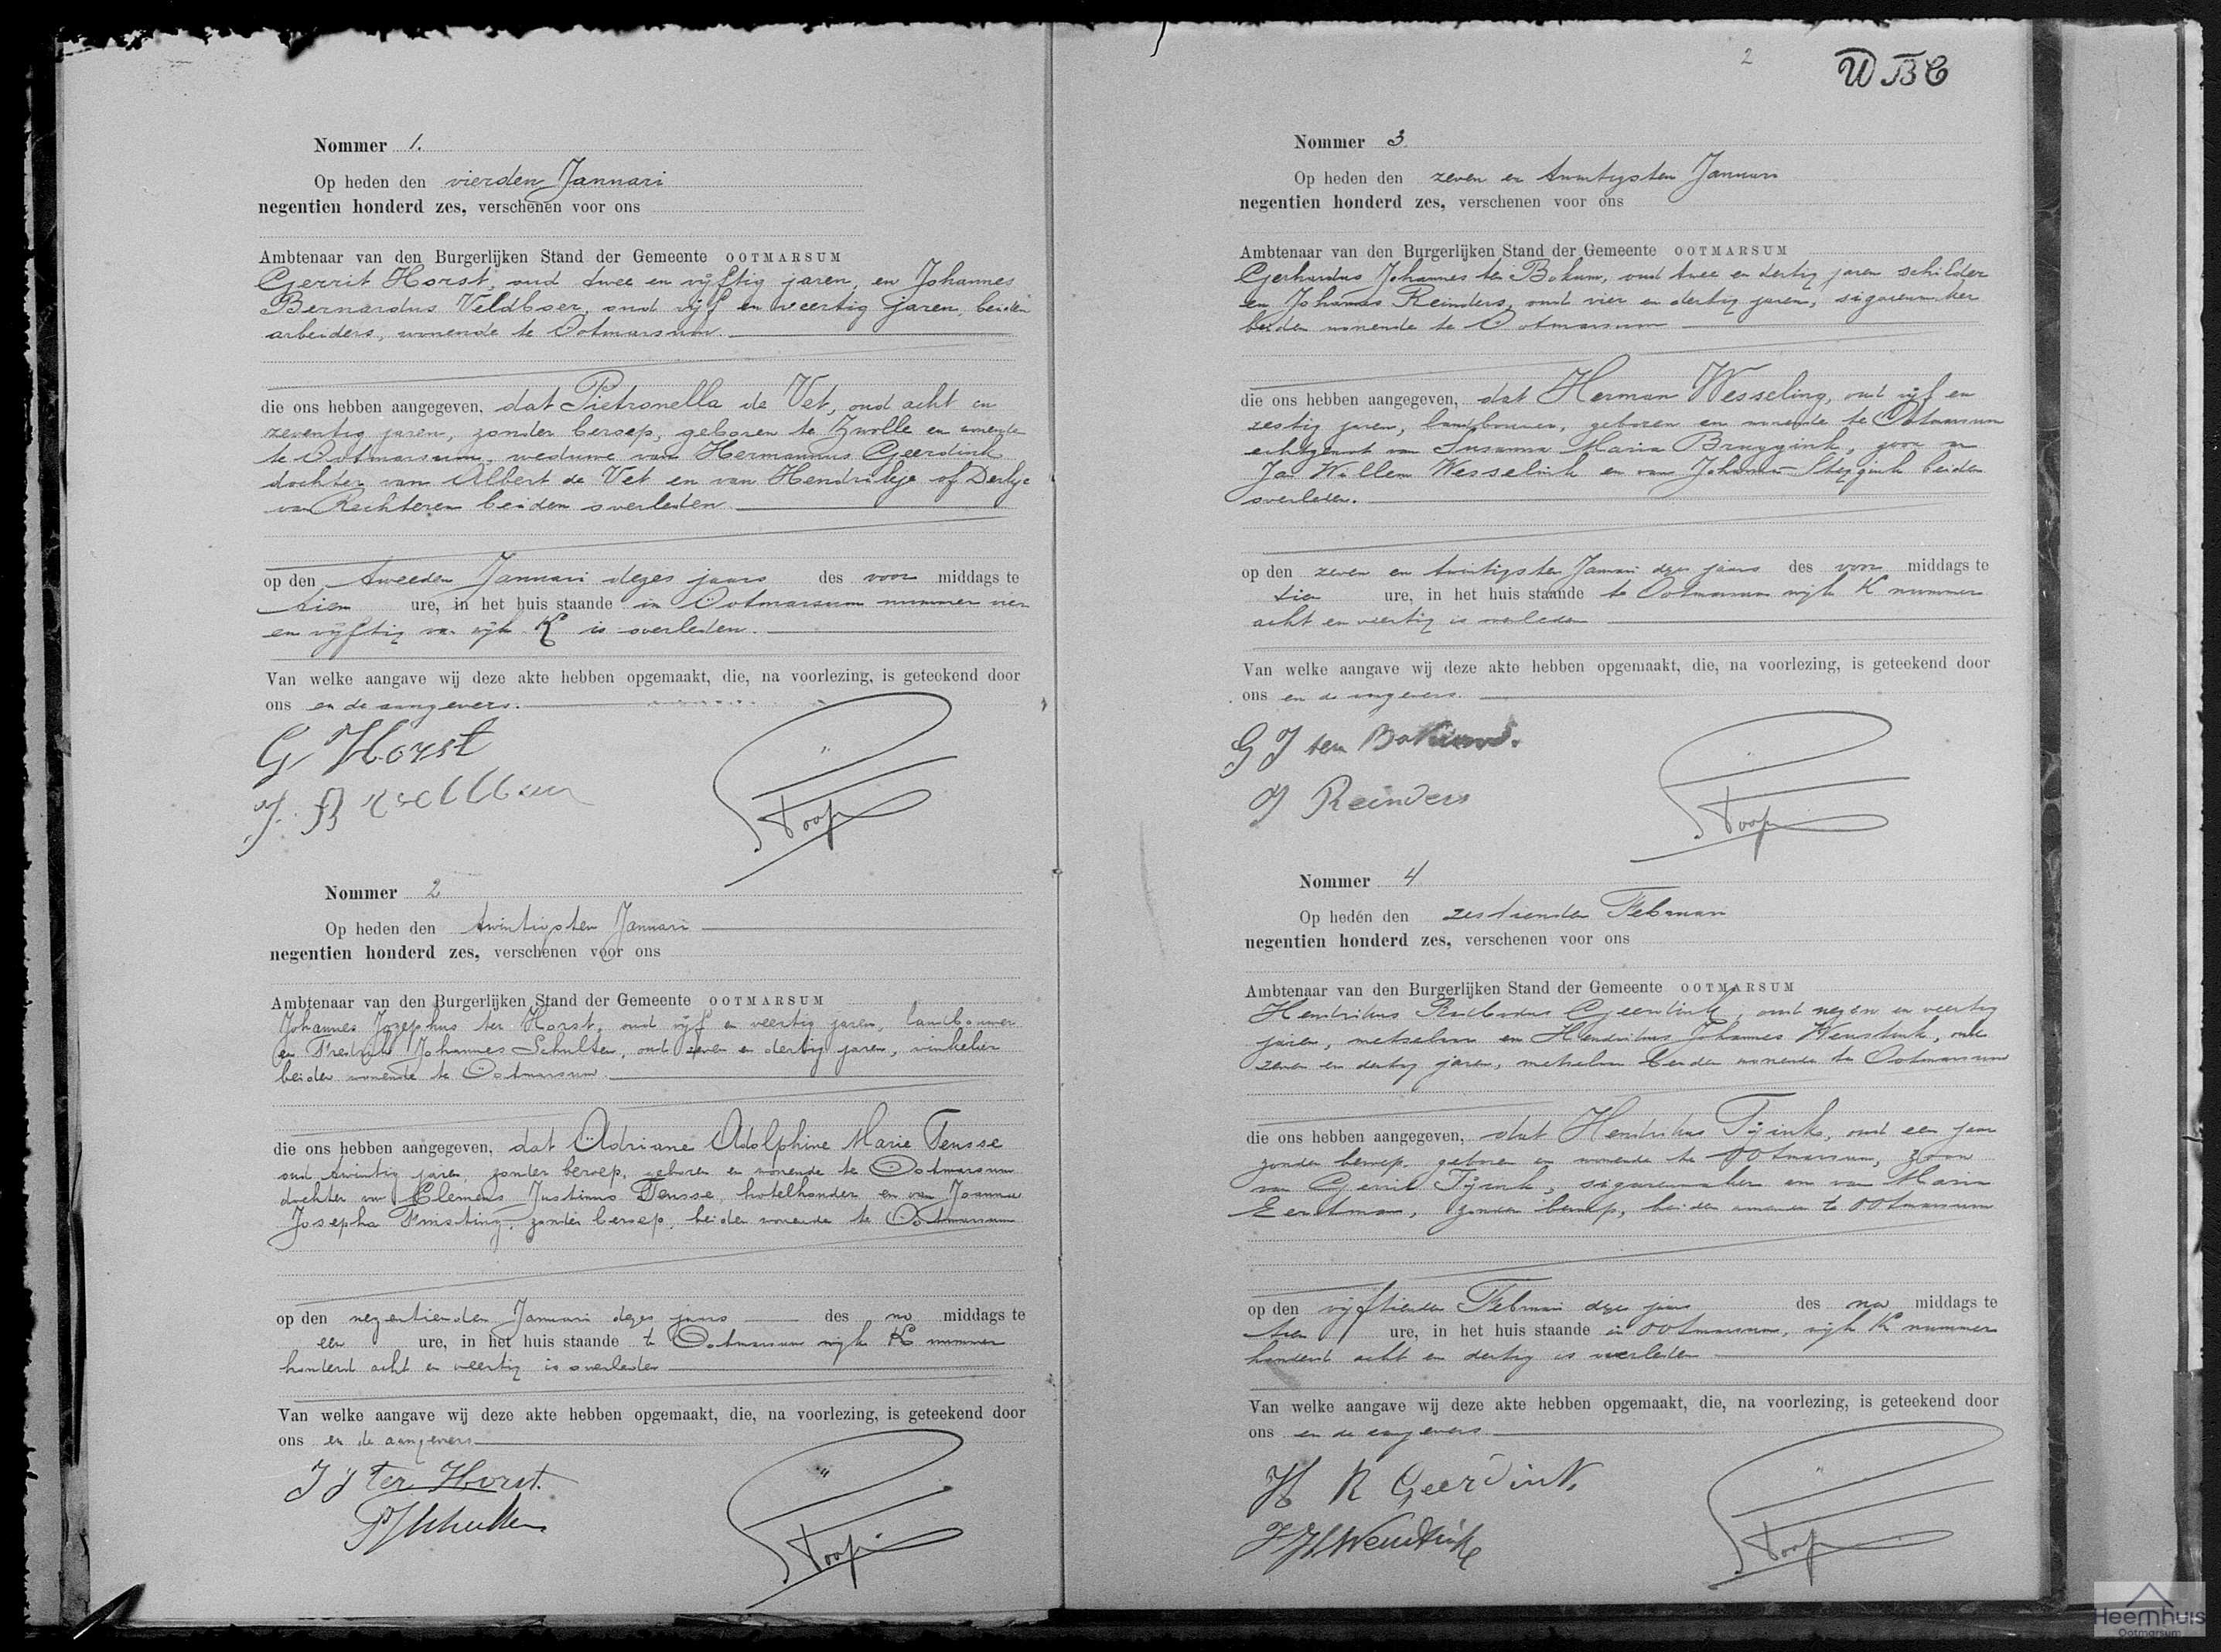 Nommer 1.
Op heden den vierden Januari
negentien honderd zes, verschenen voor ons
Ambtenaar van den Burgerlijken Stand der Gemeente OOTMARSUM
Gerrit Horst, oud twee en vijftig jaren, en Johannes
Bernardus Veldboer, oud vijf en veertig jaren, beiden
arbeiders, wonende te Ootmarsum.
die ons hebben aangegeven, dat Pietronella de Vet, oud acht en
zeventig jaren, zonder beroep, geboren te Zwolle en wonende
te Ootmarsum, weduwe van Hermannus Geerdink
dochter van Albert de Vet en van Hendrikje of Derkje
van Rechteren beiden overleden
op den tweeden Januari dezes jaars des voor middags te
tien ure, in het huis staande in Ootmarsum nummer vier
en vijftig van wijk K is overleden.
Van welke aangave wij deze akte hebben opgemaakt, die, na voorlezing, is geteekend door
ons en de aangevers.
G Horst
J. B Veldboer
Nommer 2
Op heden den twintigsten Januari
negentien honderd zes, verschenen voor ons
Ambtenaar van den Burgerlijken Stand der Gemeente OOTMARSUM
Johannes Jozephus ter Horst, oud vijf en veertig jaren, landbouwer
en Fredrik Johannes Schulten, oud zeven en dertig jaren, winkelier
beiden wonende te Ootmarsum.
die ons hebben aangegeven, dat Adriane Adolphine Marie Teusse
oud twintig jaren, zonder beroep, geboren en wonende te Ootmarsum
dochter van Clemens Justinus Teusse, hotelhouder en van Joanna
Josepha zonder beroep, beiden wonende te Ootmarsum
op den negentienden Januari dezes jaars des na middags te
een ure, in het huis staande te Ootmarsum wijk K nummer
honderd acht en veertig is overleden
Van welke aangave wij deze akte hebben opgemaakt, die, na voorlezing, is geteekend door
ons en de aangevers
J J ter Horst.
FJSchulten
2
WBC
Nommer 3
Op heden den zeven en twintigsten Januari
negentien honderd zes, verschenen voor ons
Ambtenaar van den Burgerlijken Stand der Gemeente OOTMARSUM
Gerhardus Johannes ten Bokum, oud twee en dertig jaren schilder
en Johannes Reinders, oud vier en dertig jaren, sigarenmaker
beiden wonende te Ootmarsum
die ons hebben aangegeven, dat Herman Wesseling, oud vijf en
zestig jaren, landbouwer, geboren en wonende te Ootmarsum
echtgenoot van Susanna Maria Bruggink, zoon van
Jan Willem Wesselink en van Johanna beiden
overleden.
op den zeven en twintigsten Januari dezes jaars des voor middags te
tien ure, in het huis staande te Ootmarsum wijk K nummer
acht en veertig is overleden
Van welke aangave wij deze akte hebben opgemaakt, die, na voorlezing, is geteekend door
ons en de aangevers.
G J ten Bokum.
J Reinders
Nommer 4
Op heden den zestienden Februari
negentien honderd zes, verschenen voor ons
Ambtenaar van den Burgerlijken Stand der Gemeente OOTMARSUM
Hendrikus Geerdink, oud negen en veertig
jaren, metselaar en Hendrikus Johannes Wenstink, oud
zeven en dertig jaren, metselaar beiden wonende te Ootmarsum
die ons hebben aangegeven, dat Hendrikus Tijink, oud een jaar
zonder beroep, geboren en wonende te Ootmarsum, zoon
van Gerrit Tijink, sigarenmaker en van Maria
zonder beroep, beiden wonende te Ootmarsum
op den vijftienden Februari dezes jaars des na middags te
tien ure, in het huis staande in Ootmarsum, wijk K nummer
honderd acht en dertig is overleden
Van welke aangave wij deze akte hebben opgemaakt, die, na voorlezing, is geteekend door
ons en de aangevers
H R Geerdink.
Heemhuis
Ootmarsum